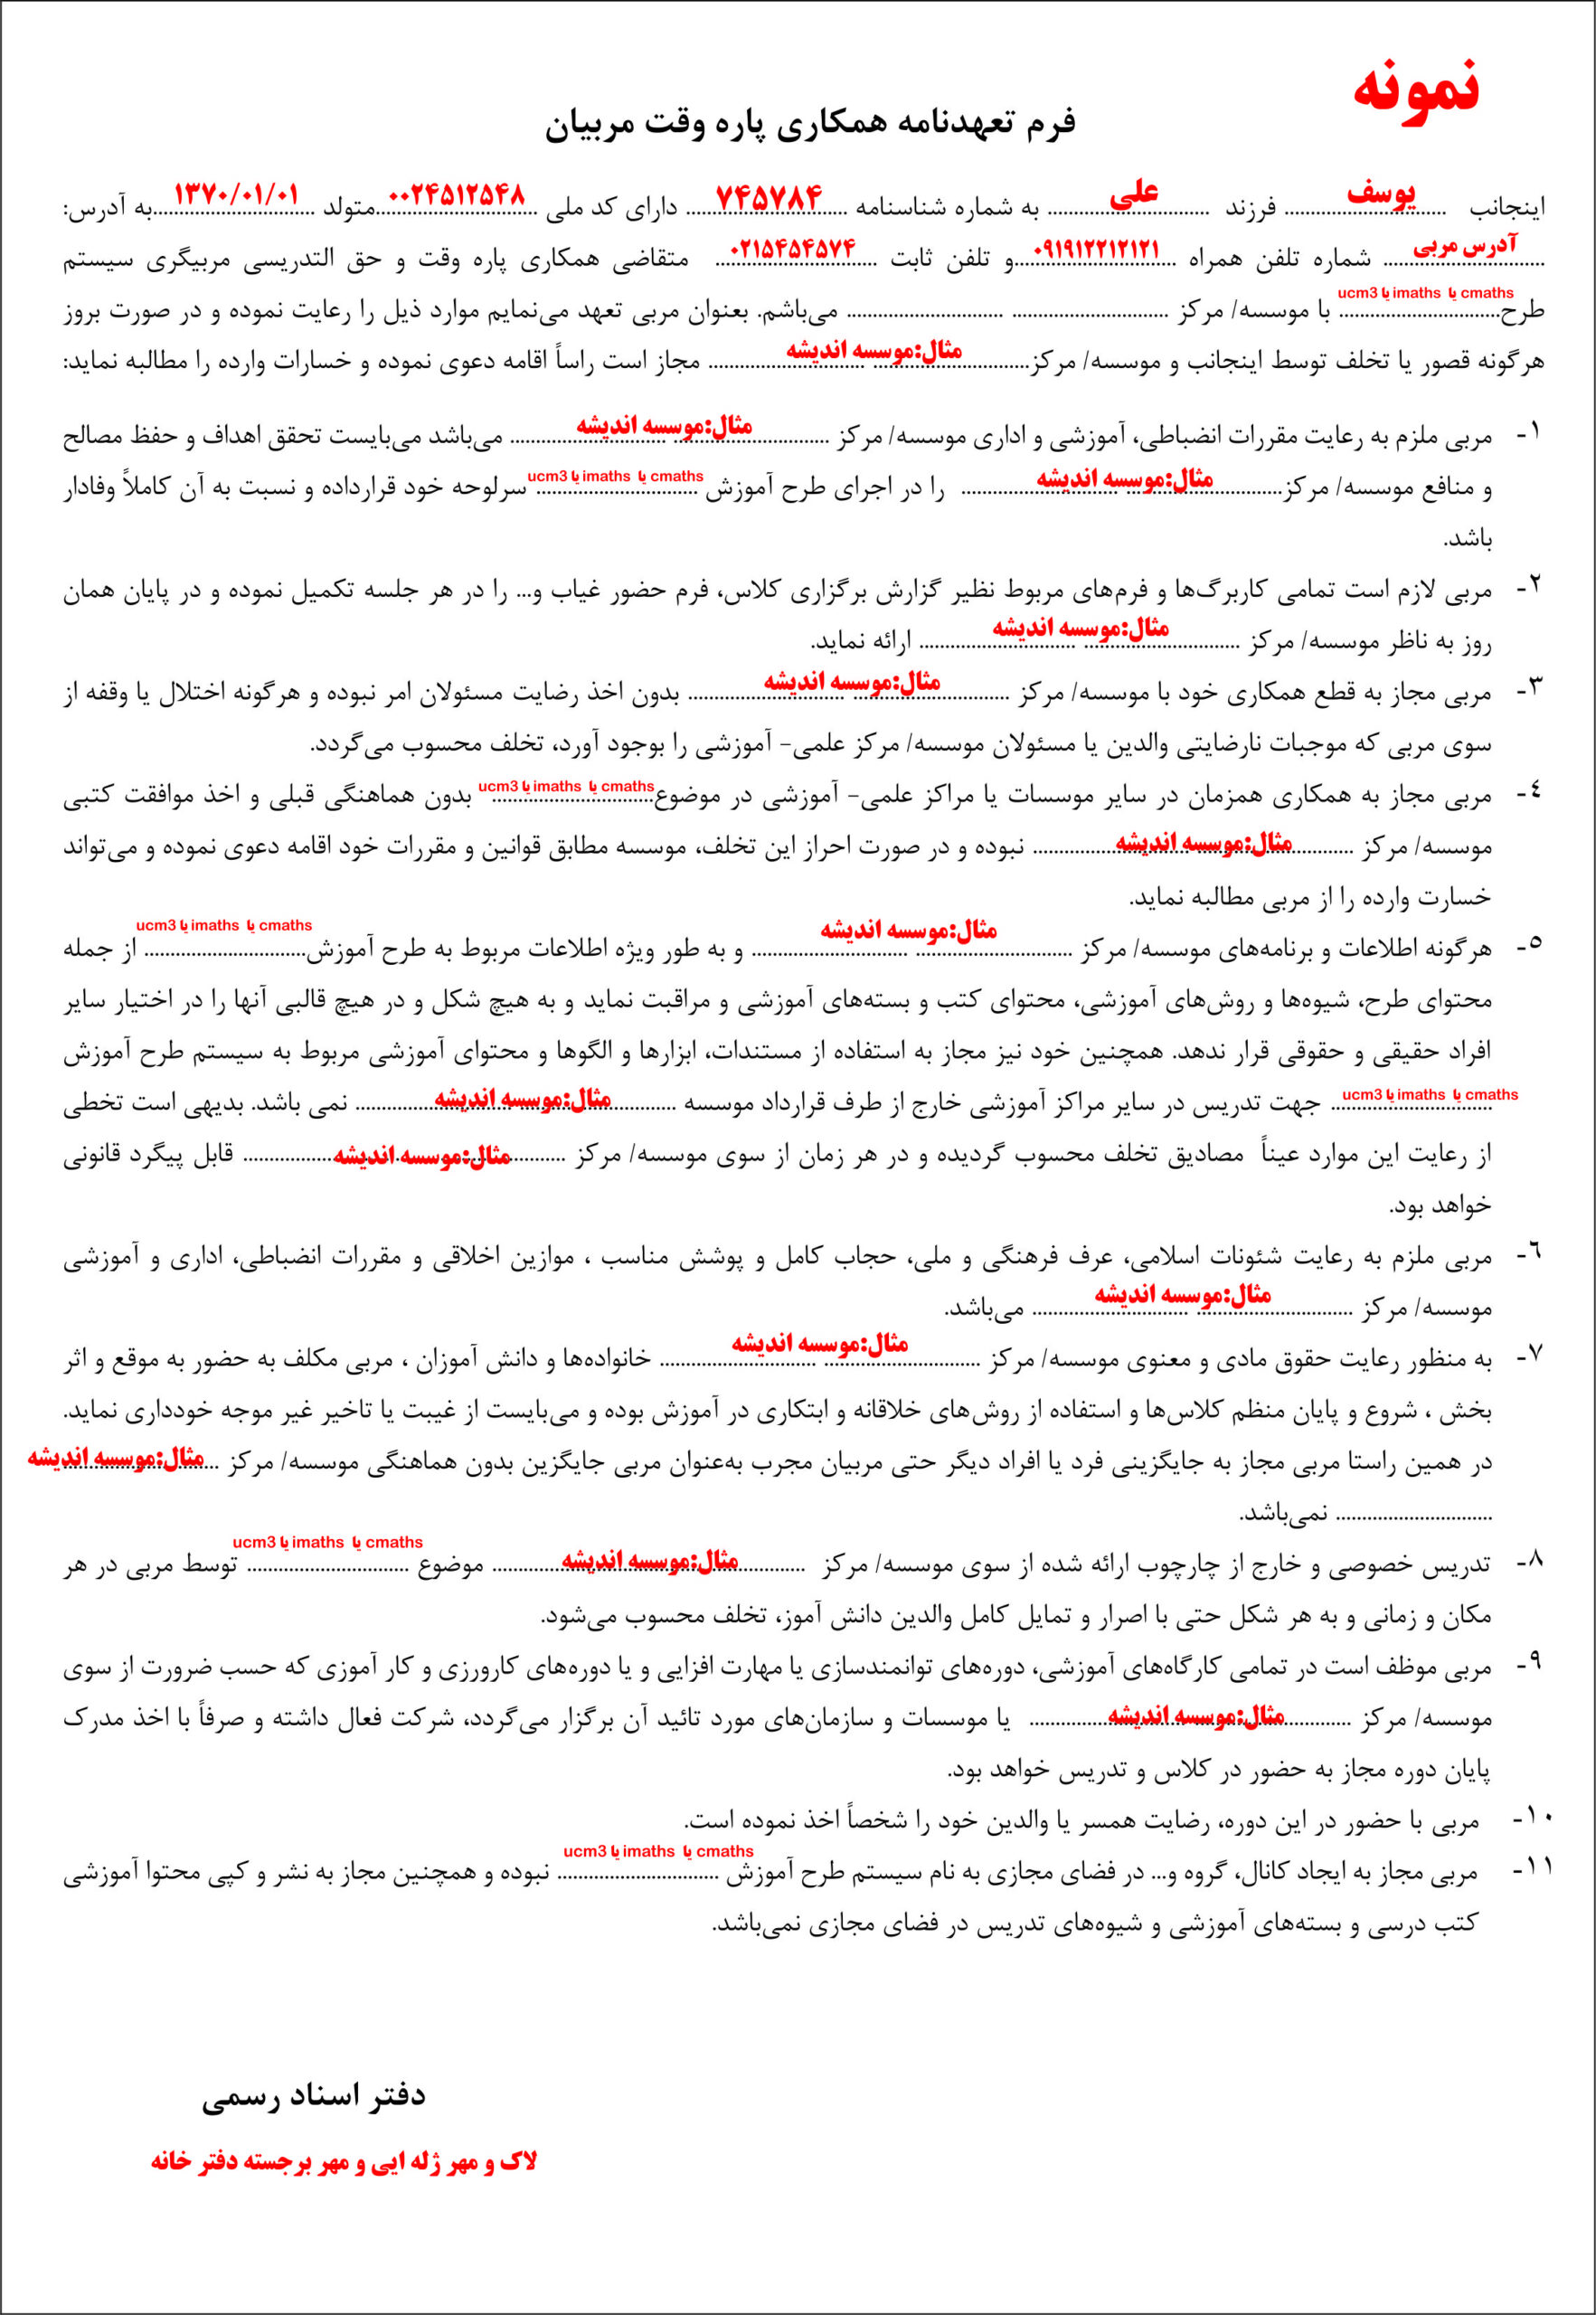 نمونه
فرم تعهدنامه همکاری پاره وقت مربیان
اینجانب یوسف فرزند علی به شماره شناسنامه ۷۴۵۷۸۴ دارای کد ملی ۰۰۲۴۵۱۲۵۴۸ متولد ۱۳۷۰/۰۱/۰۱ به آدرس:
آدرس مربی شماره تلفن همراه ۰۹۱۹۱۲۲۱۲۱۲۱ و تلفن ثابت ۰۲۱۵۴۵۴۵۷۴ متقاضی همکاری پاره وقت و حق التدریسی مربیگری سیستم
طرح cmaths یا imaths یا ucm3 با موسسه/ مرکز .............................. .............................. می‌باشم. بعنوان مربی تعهد می‌نمایم موارد ذیل را رعایت نموده و در صورت بروز
هرگونه قصور یا تخلف توسط اینجانب و موسسه/ مرکز مثال:موسسه اندیشه مجاز است راساً اقامه دعوی نموده و خسارات وارده را مطالبه نماید:
۱- مربی ملزم به رعایت مقررات انضباطی، آموزشی و اداری موسسه/ مرکز مثال:موسسه اندیشه می‌باشد می‌بایست تحقق اهداف و حفظ مصالح
و منافع موسسه/ مرکز مثال:موسسه اندیشه را در اجرای طرح آموزش cmaths یا imaths یا ucm3 سرلوحه خود قرارداده و نسبت به آن کاملاً وفادار
باشد.
۲- مربی لازم است تمامی کاربرگ‌ها و فرم‌های مربوط نظیر گزارش برگزاری کلاس، فرم حضور غیاب و... را در هر جلسه تکمیل نموده و در پایان همان
روز به ناظر موسسه/ مرکز مثال:موسسه اندیشه ارائه نماید.
۳- مربی مجاز به قطع همکاری خود با موسسه/ مرکز مثال:موسسه اندیشه بدون اخذ رضایت مسئولان امر نبوده و هرگونه اختلال یا وقفه از
سوی مربی که موجبات نارضایتی والدین یا مسئولان موسسه/ مرکز علمی- آموزشی را بوجود آورد، تخلف محسوب می‌گردد.
٤- مربی مجاز به همکاری همزمان در سایر موسسات یا مراکز علمی- آموزشی در موضوع cmaths یا imaths یا ucm3 بدون هماهنگی قبلی و اخذ موافقت کتبی
موسسه/ مرکز مثال:موسسه اندیشه نبوده و در صورت احراز این تخلف، موسسه مطابق قوانین و مقررات خود اقامه دعوی نموده و می‌تواند
خسارت وارده را از مربی مطالبه نماید.
٥- هرگونه اطلاعات و برنامه‌های موسسه/ مرکز مثال:موسسه اندیشه و به طور ویژه اطلاعات مربوط به طرح آموزش cmaths یا imaths یا ucm3 از جمله
محتوای طرح، شیوه‌ها و روش‌های آموزشی، محتوای کتب و بسته‌های آموزشی و مراقبت نماید و به هیچ شکل و در هیچ قالبی آنها را در اختیار سایر
افراد حقیقی و حقوقی قرار ندهد. همچنین خود نیز مجاز به استفاده از مستندات، ابزارها و الگوها و محتوای آموزشی مربوط به سیستم طرح آموزش
cmaths یا imaths یا ucm3 جهت تدریس در سایر مراکز آموزشی خارج از طرف قرارداد موسسه مثال:موسسه اندیشه نمی باشد. بدیهی است تخطی
از رعایت این موارد عیناً مصادیق تخلف محسوب گردیده و در هر زمان از سوی موسسه/ مرکز مثال:موسسه اندیشه قابل پیگرد قانونی
خواهد بود.
٦- مربی ملزم به رعایت شئونات اسلامی، عرف فرهنگی و ملی، حجاب کامل و پوشش مناسب ، موازین اخلاقی و مقررات انضباطی، اداری و آموزشی
موسسه/ مرکز مثال:موسسه اندیشه می‌باشد.
۷- به منظور رعایت حقوق مادی و معنوی موسسه/ مرکز مثال:موسسه اندیشه خانواده‌ها و دانش آموزان ، مربی مکلف به حضور به موقع و اثر
بخش ، شروع و پایان منظم کلاس‌ها و استفاده از روش‌های خلاقانه و ابتکاری در آموزش بوده و می‌بایست از غیبت یا تاخیر غیر موجه خودداری نماید.
در همین راستا مربی مجاز به جایگزینی فرد یا افراد دیگر حتی مربیان مجرب به‌عنوان مربی جایگزین بدون هماهنگی موسسه/ مرکز مثال:موسسه اندیشه
.............................. نمی‌باشد.
۸- تدریس خصوصی و خارج از چارچوب ارائه شده از سوی موسسه/ مرکز مثال:موسسه اندیشه موضوع cmaths یا imaths یا ucm3 توسط مربی در هر
مکان و زمانی و به هر شکل حتی با اصرار و تمایل کامل والدین دانش آموز، تخلف محسوب می‌شود.
۹- مربی موظف است در تمامی کارگاه‌های آموزشی، دوره‌های توانمندسازی یا مهارت افزایی و یا دوره‌های کارورزی و کار آموزی که حسب ضرورت از سوی
موسسه/ مرکز مثال:موسسه اندیشه یا موسسات و سازمان‌های مورد تائید آن برگزار می‌گردد، شرکت فعال داشته و صرفاً با اخذ مدرک
پایان دوره مجاز به حضور در کلاس و تدریس خواهد بود.
۱۰- مربی با حضور در این دوره، رضایت همسر یا والدین خود را شخصاً اخذ نموده است.
۱۱- مربی مجاز به ایجاد کانال، گروه و... در فضای مجازی به نام سیستم طرح آموزش cmaths یا imaths یا ucm3 نبوده و همچنین مجاز به نشر و کپی محتوا آموزشی
کتب درسی و بسته‌های آموزشی و شیوه‌های تدریس در فضای مجازی نمی‌باشد.
دفتر اسناد رسمی
لاک و مهر ژله ایی و مهر برجسته دفتر خانه